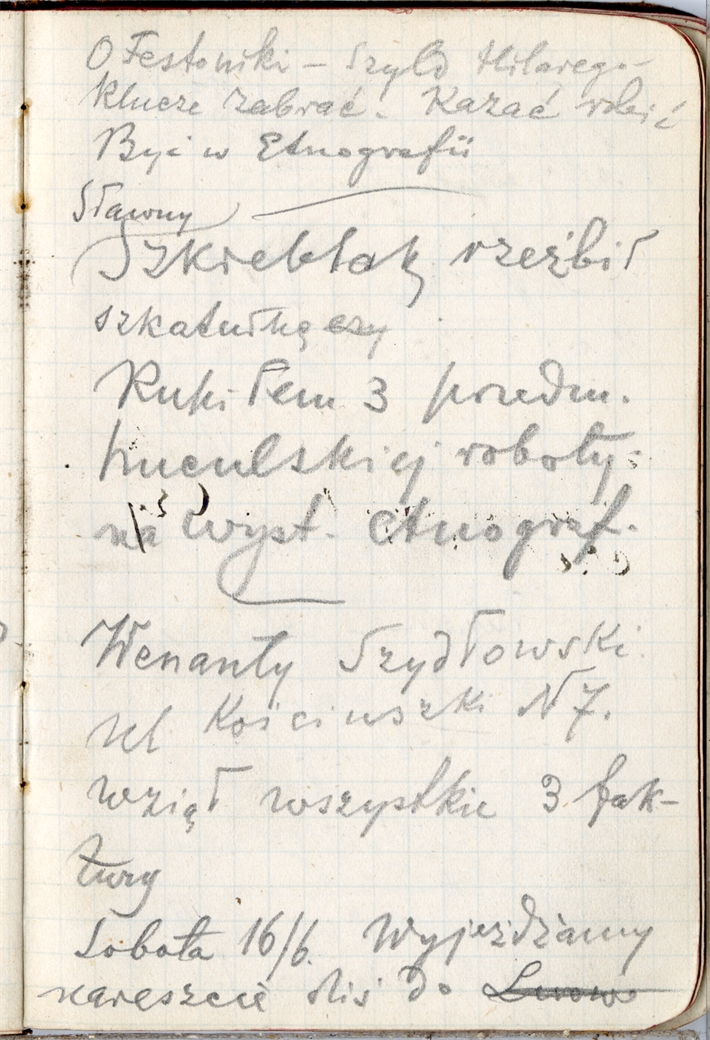 O Festoniki – Szyld Hilarego –
klucze zabrać. Kazać robić
Być w Etnografii
Sławny
Szkieblak rzeźbił
szkatułkę czy
Kupiłem 3 przedm.
huculskiej roboty.
na wyst. etnograf.
Wenanty Szydłowski
ul Kościuszki N 7.
wziął wszystkie 3 fak-
tury
Sobota 16/6. Wyjeżdżamy
nareszcie dziś do Lwowa